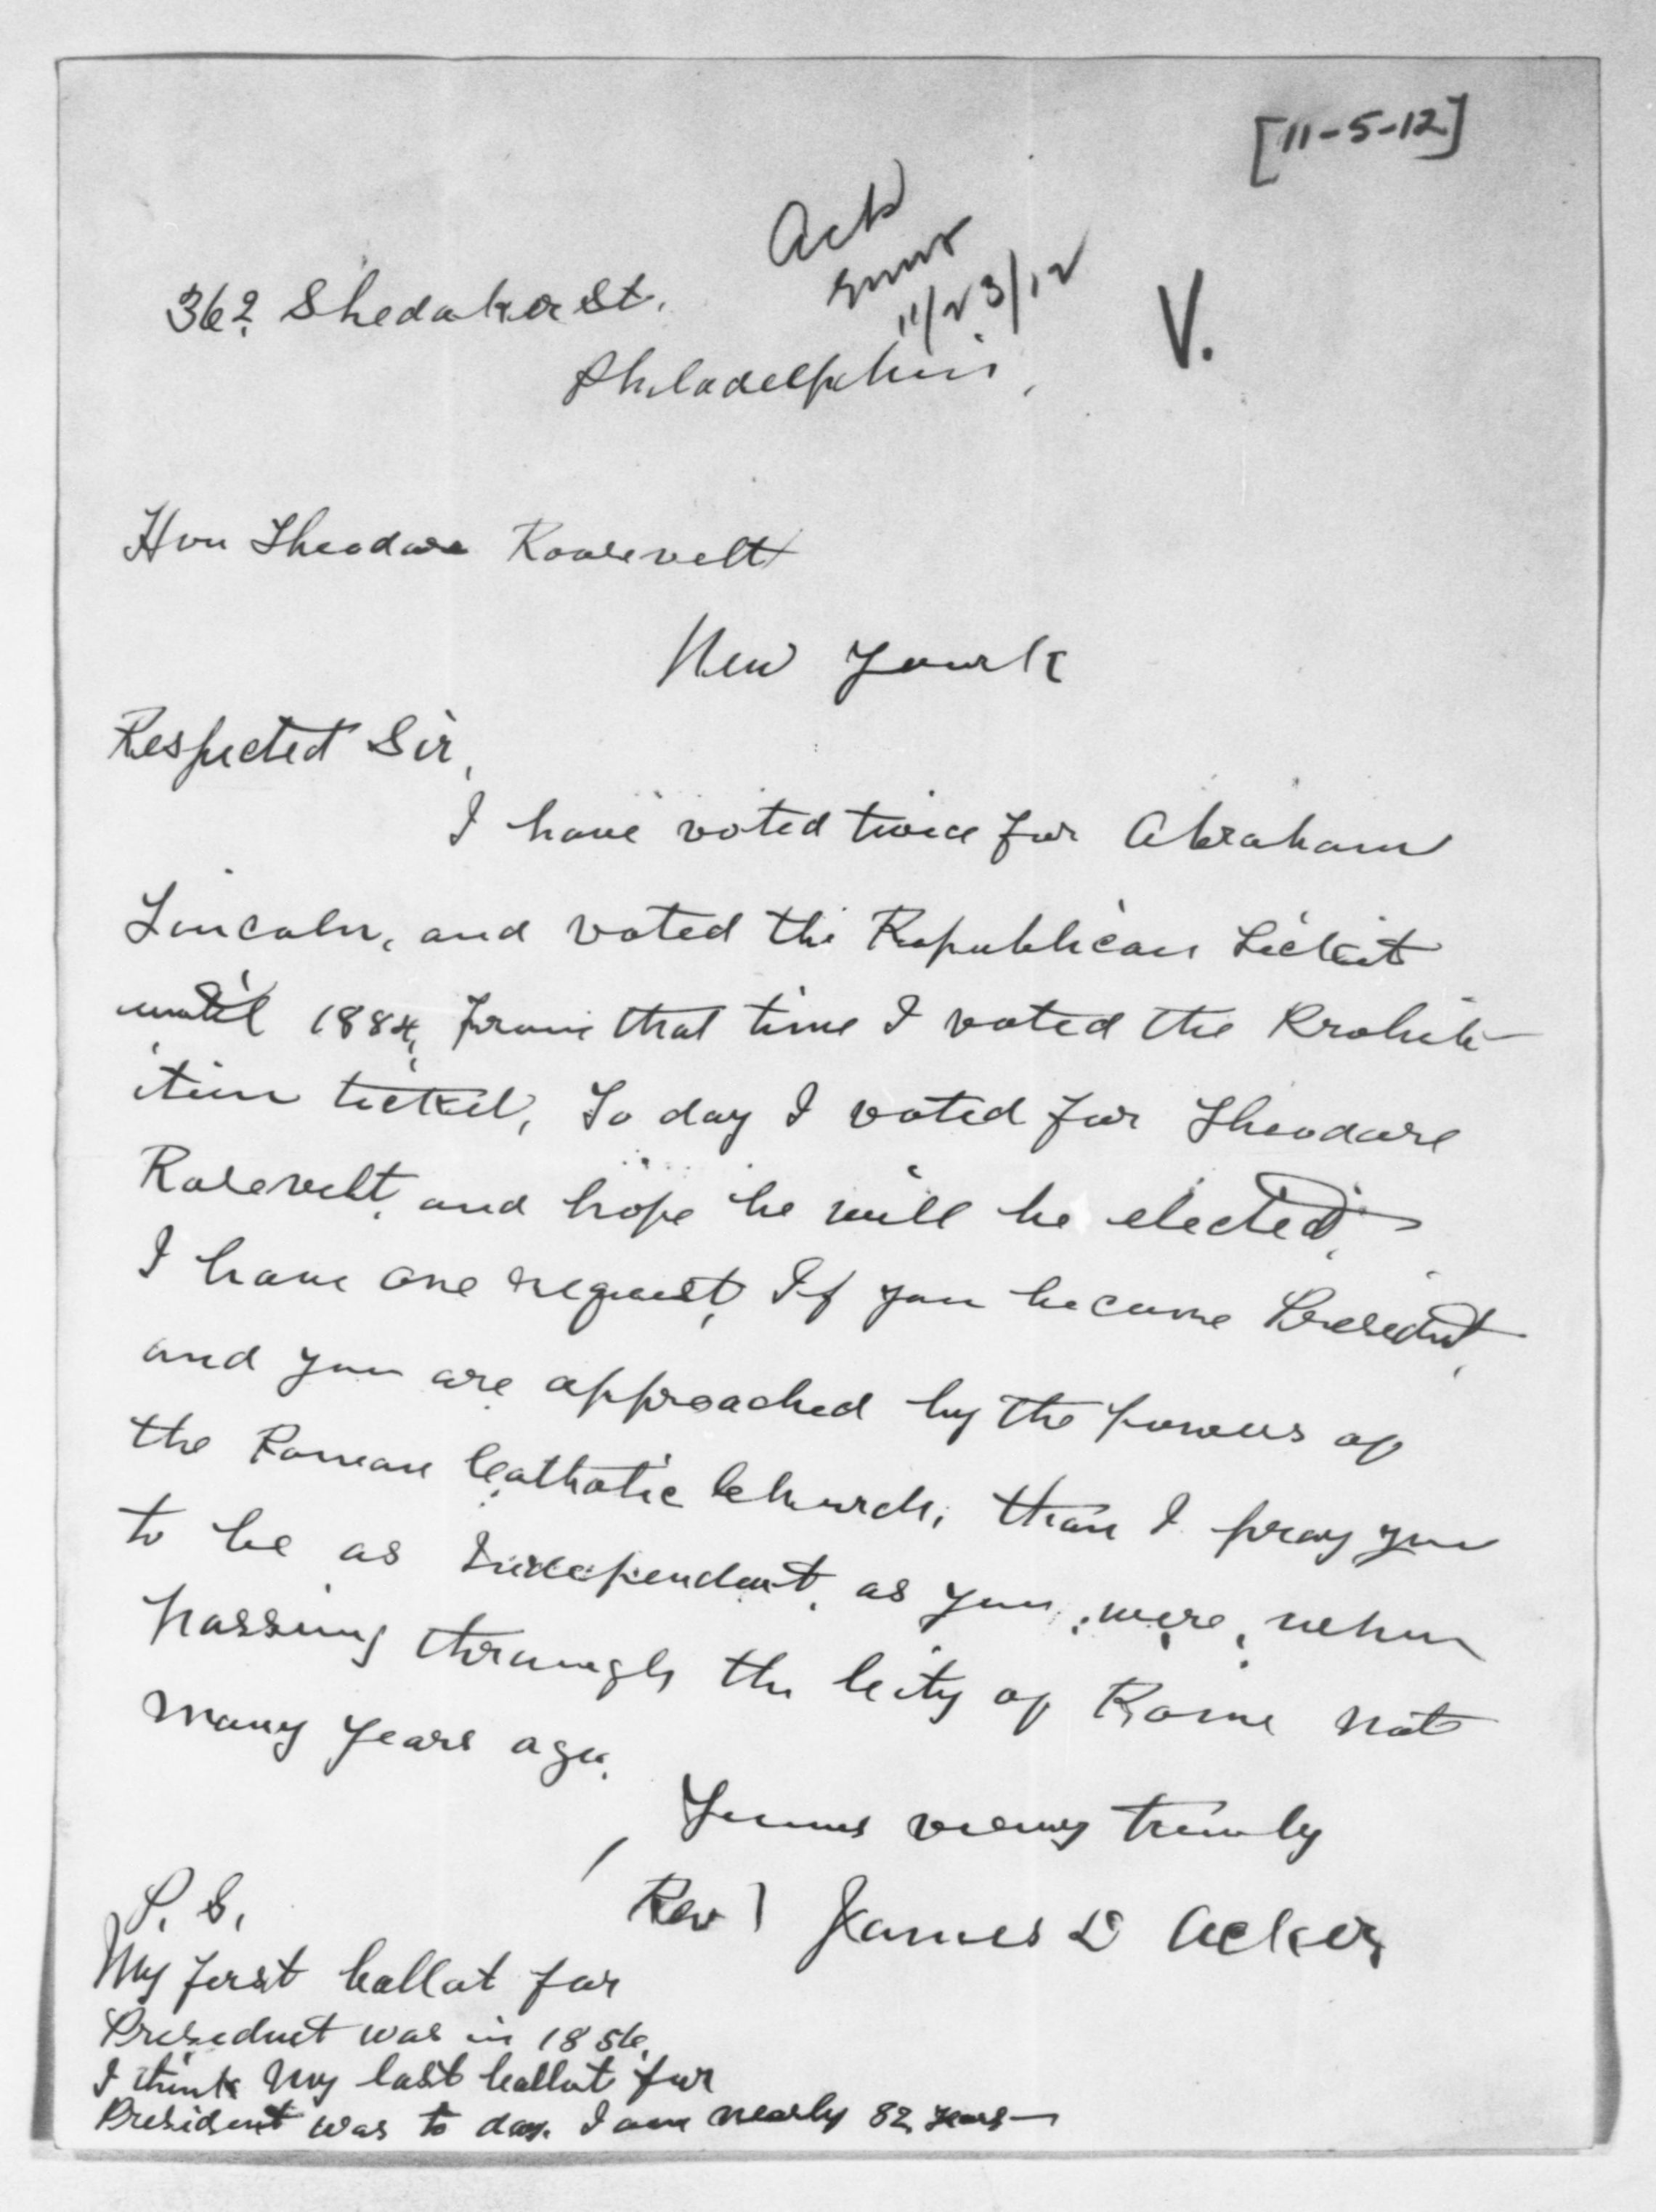 [11-5-12]
Ackd
11/23/12
V.
362 Shedaker St.
Philadelphia,
Hon Theodore Roosevelt
New York
Respected Sir,
I have voted twice for Abraham
Lincoln, and voted the Republican ticket
until 1884, from that time I voted the Prohib-
ition ticket, To day I voted for Theodore
Rosevelt, and hope he will be elected,
I have one request, If you become President,
and you are approached by the powers of
the Roman Catholic Church, than I pray you
to be as Independent, as you were, when
passing through the City of Rome not
many years ago.
Yours very truly
Rev James D Acker
P. S.
My first ballot for
President was in 1856,
I think my last ballot for
President was to day. I am nearly 82 years—